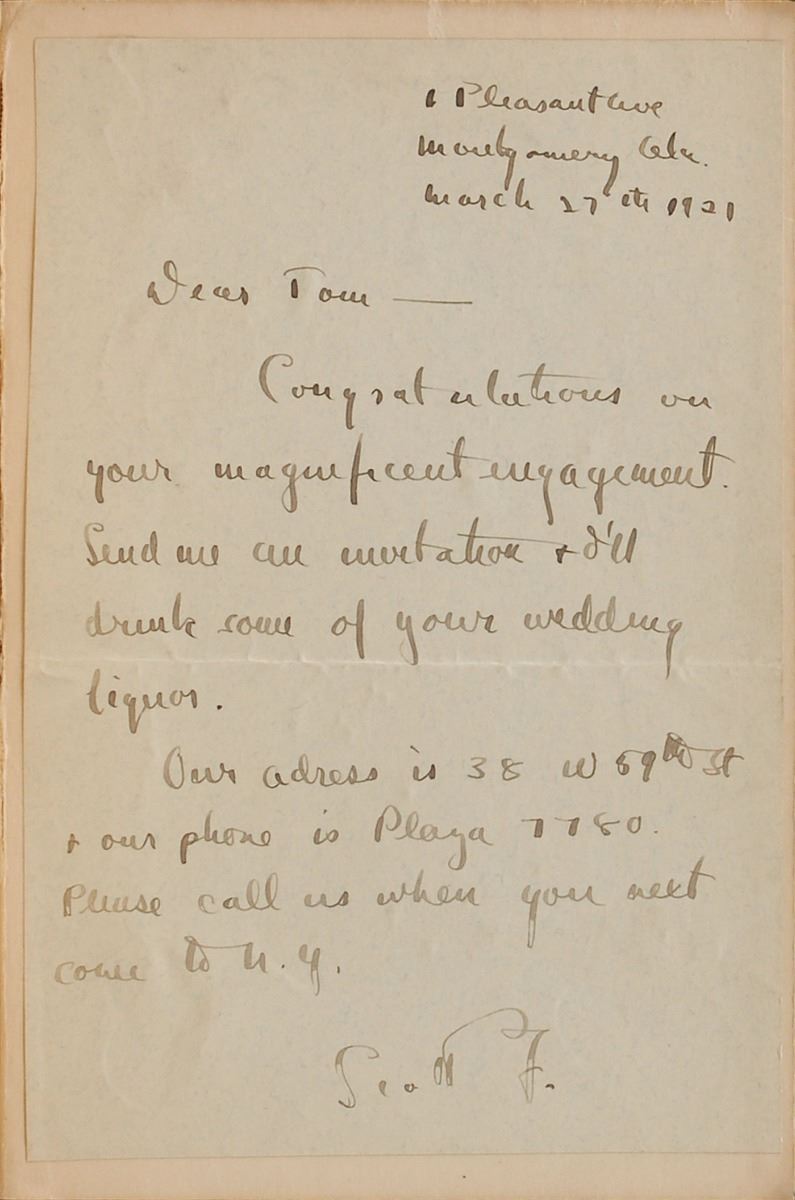 6 Pleasant Ave
Montgomery Ala.
March 27th 1921
Dear Tom —
Congratulations on
your magnificent engagement.
Send me an invitation + I'll
drink some of your wedding
liquor.
Our adress is 38 W 59th St
+ our phone is Plaza 7780.
Please call us when you next
come to N.Y.
Scott F.